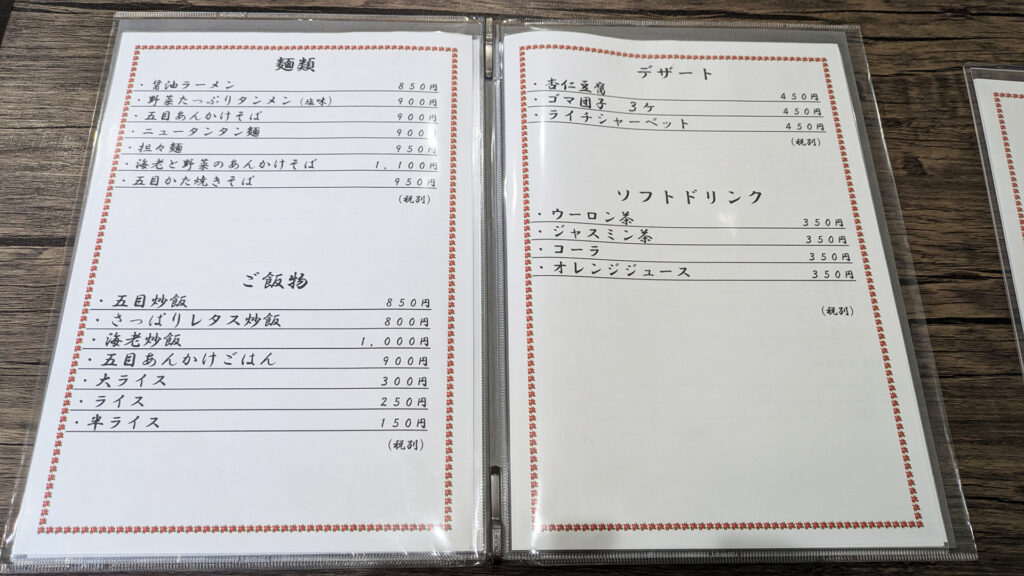 麺類
・醤油ラーメン 850円
・野菜たっぷりタンメン(塩味) 900円
・五目あんかけそば 900円
・ニュータンタン麺 900円
・担々麺 950円
・海老と野菜のあんかけそば 1,100円
・五目かた焼きそば 950円
(税別)
ご飯物
・五目炒飯 850円
・さっぱりレタス炒飯 800円
・海老炒飯 1,000円
・五目あんかけごはん 900円
・大ライス 300円
・ライス 250円
・半ライス 150円
(税別)
デザート
・杏仁豆腐 450円
・ゴマ団子 3ケ 450円
・ライチシャーベット 450円
(税別)
ソフトドリンク
・ウーロン茶 350円
・ジャスミン茶 350円
・コーラ 350円
・オレンジジュース 350円
(税別)